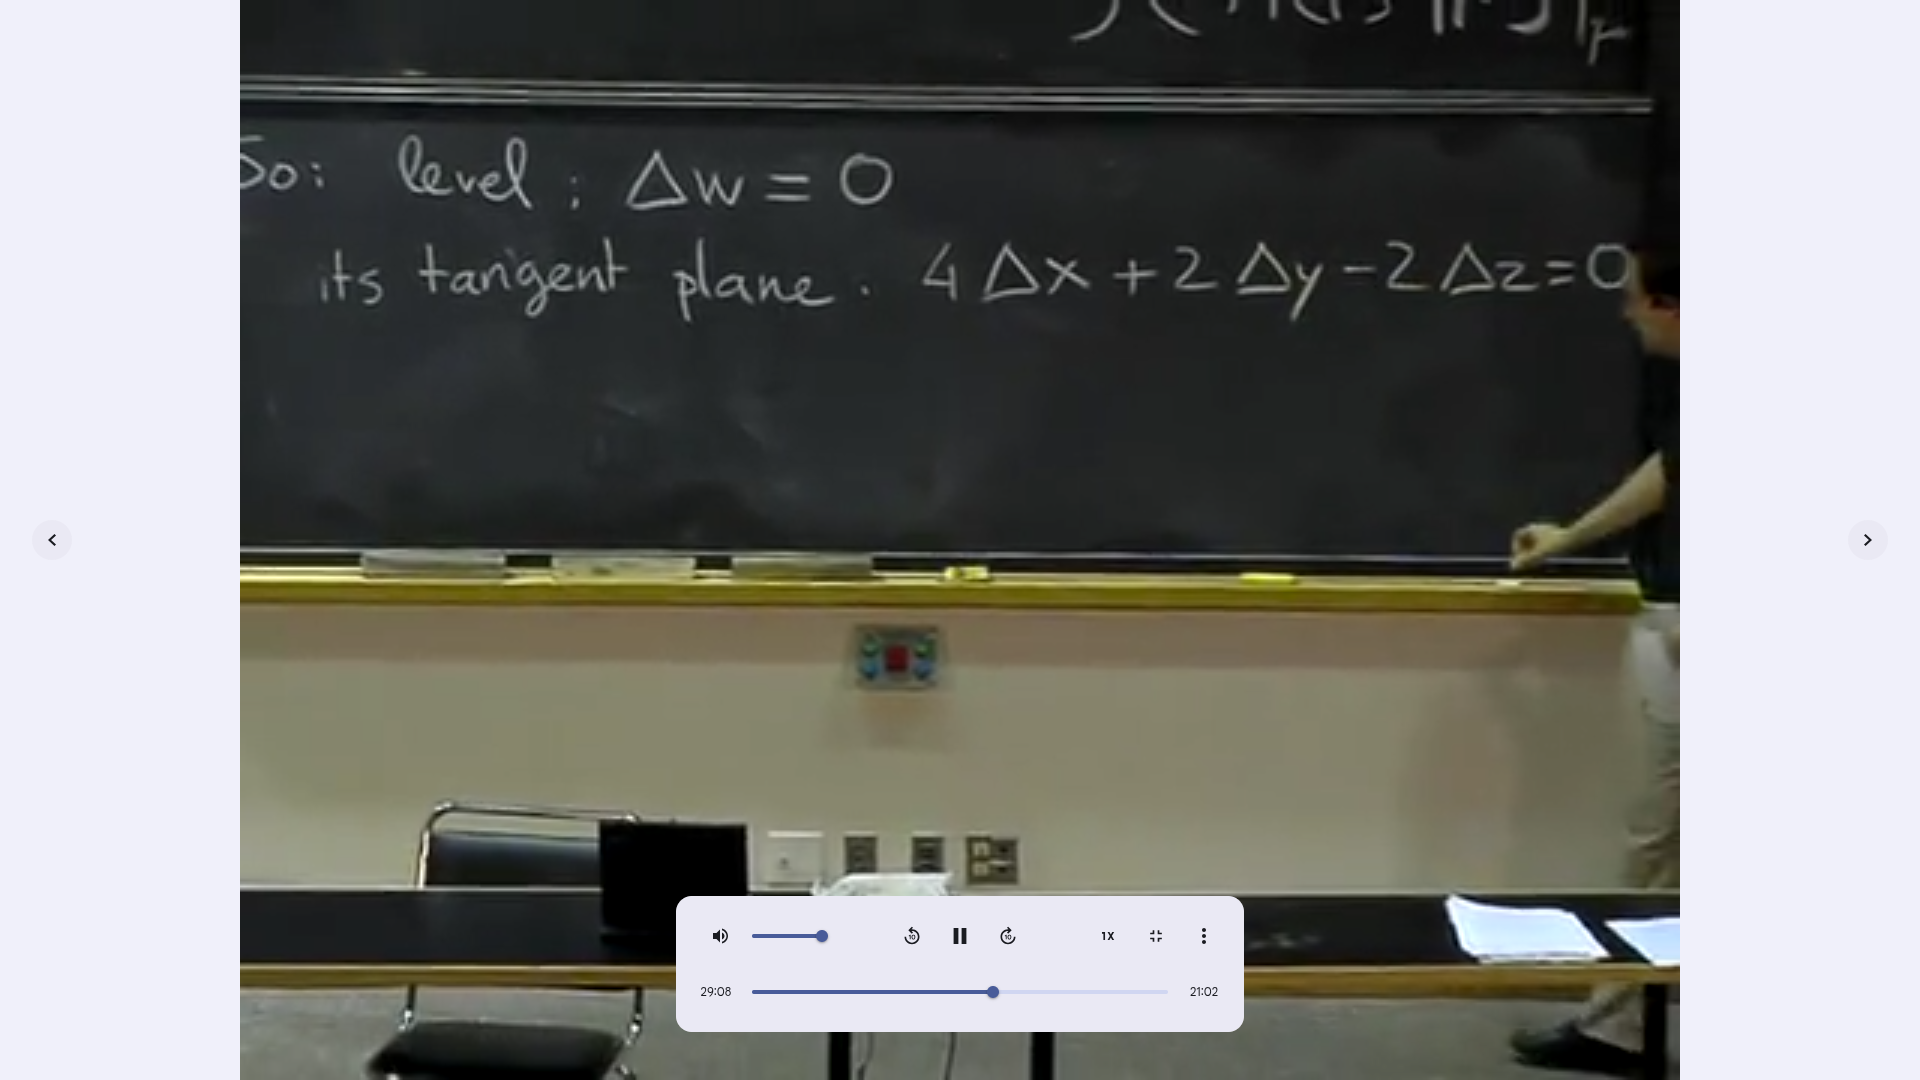 So: level: Δw = 0
its tangent plane. 4Δx + 2Δy - 2Δz = 0
1X
29:08
21:02